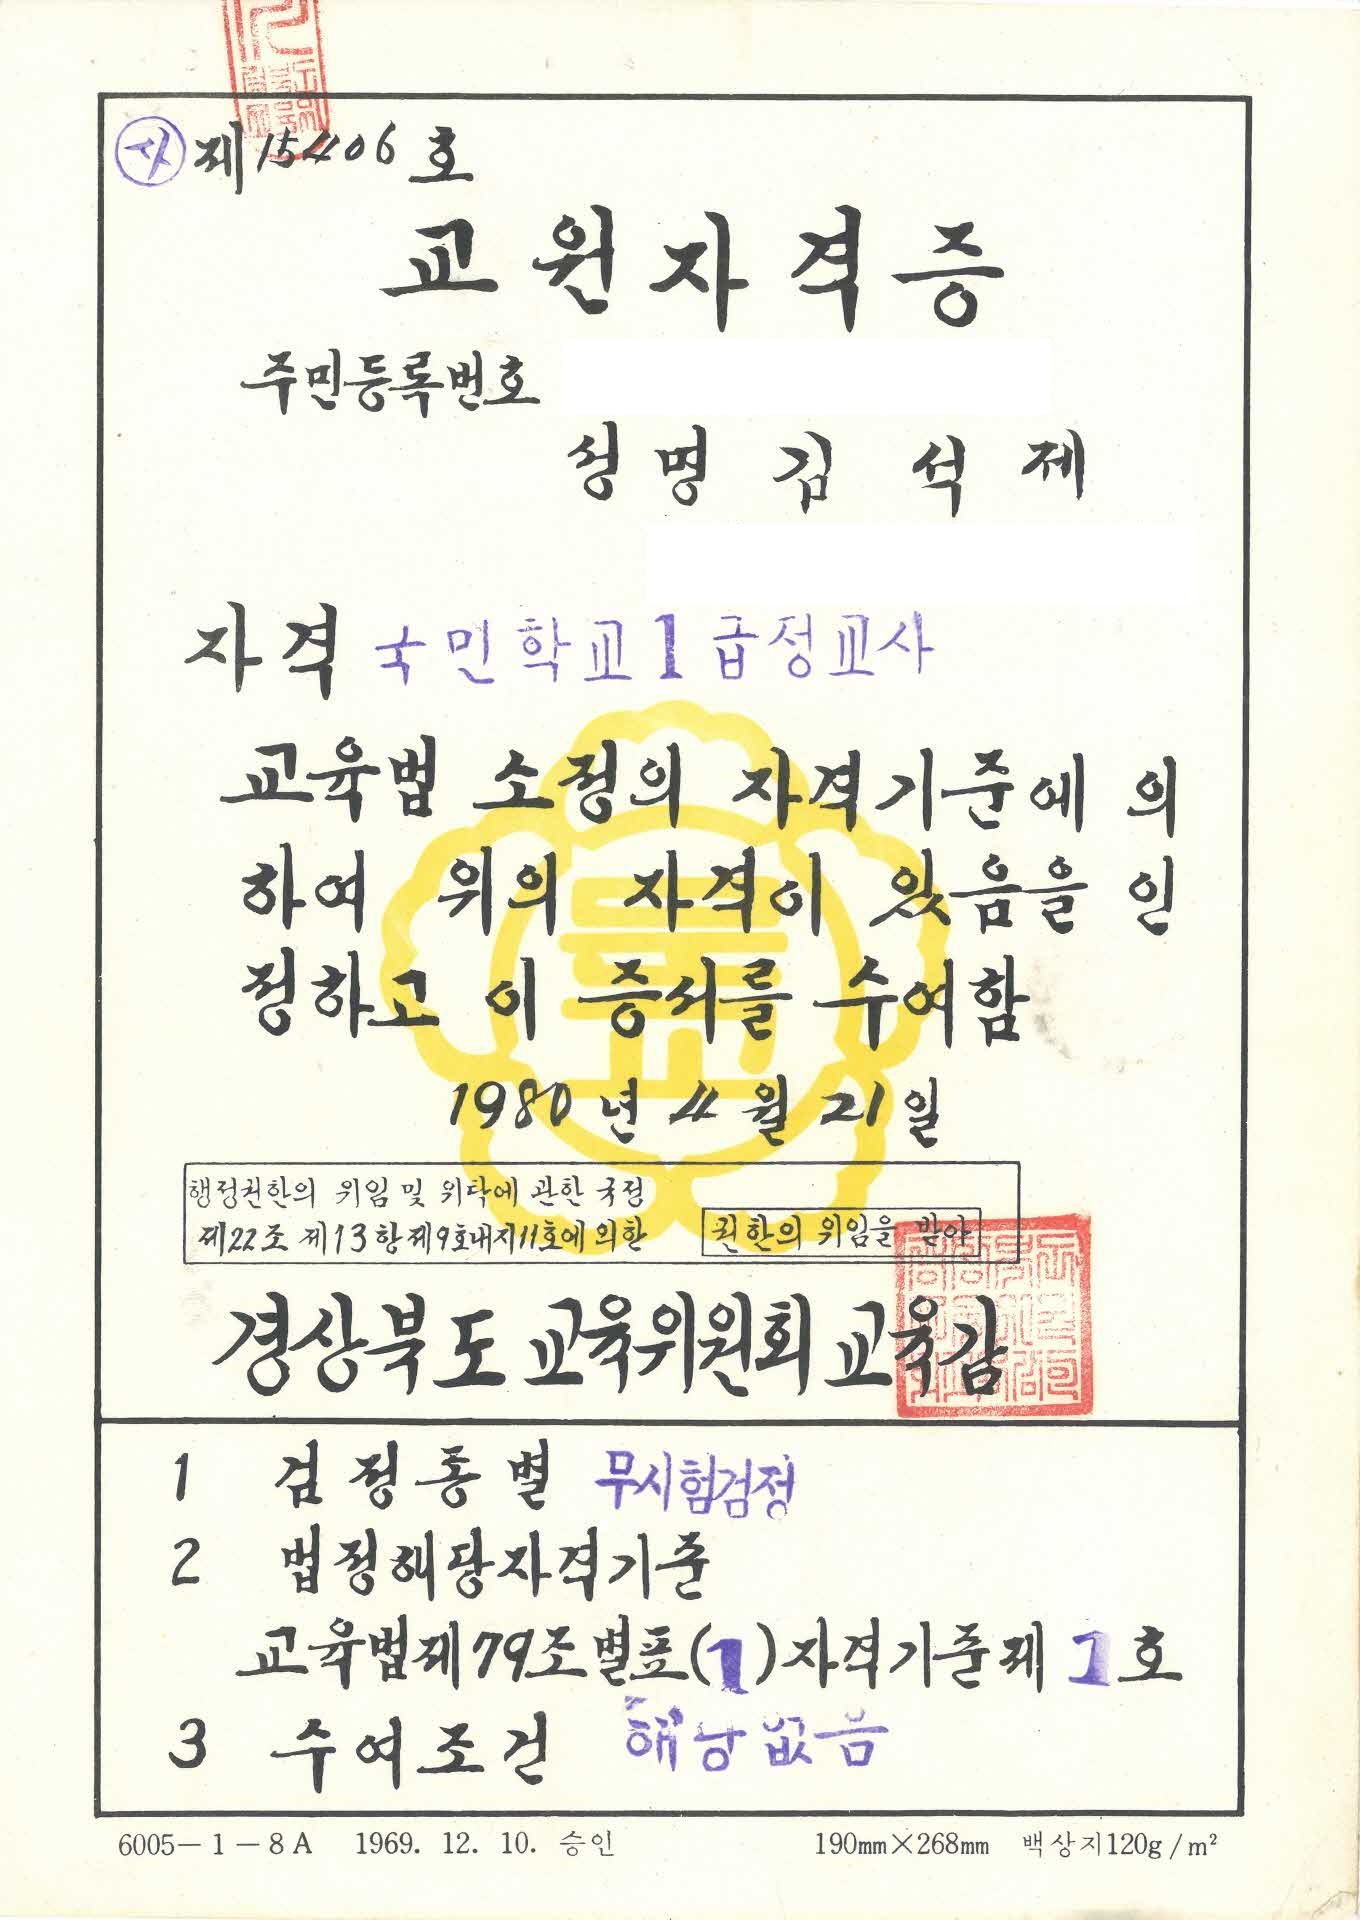 자 제 15406 호
교원자격증
주민등록번호
성명 김석제
자격 국민학교1급정교사
교육법 소정의 자격기준에 의
하여 위의 자격이 있음을 인
정하고 이 증서를 수여함
1980 년 4 월 21 일
행정권한의 위임 및 위탁에 관한 규정
제22조 제13항제9호내지11호에 의한 권한의 위임을 받아
경상북도교육위원회교육감
1 검정종별 무시험검정
2 법정해당자격기준
교육법제79조별표(1)자격기준제1호
3 수여조건 해당없음
6005-1-8A 1969. 12. 10. 승인 190mm×268mm 백상지120g/m²